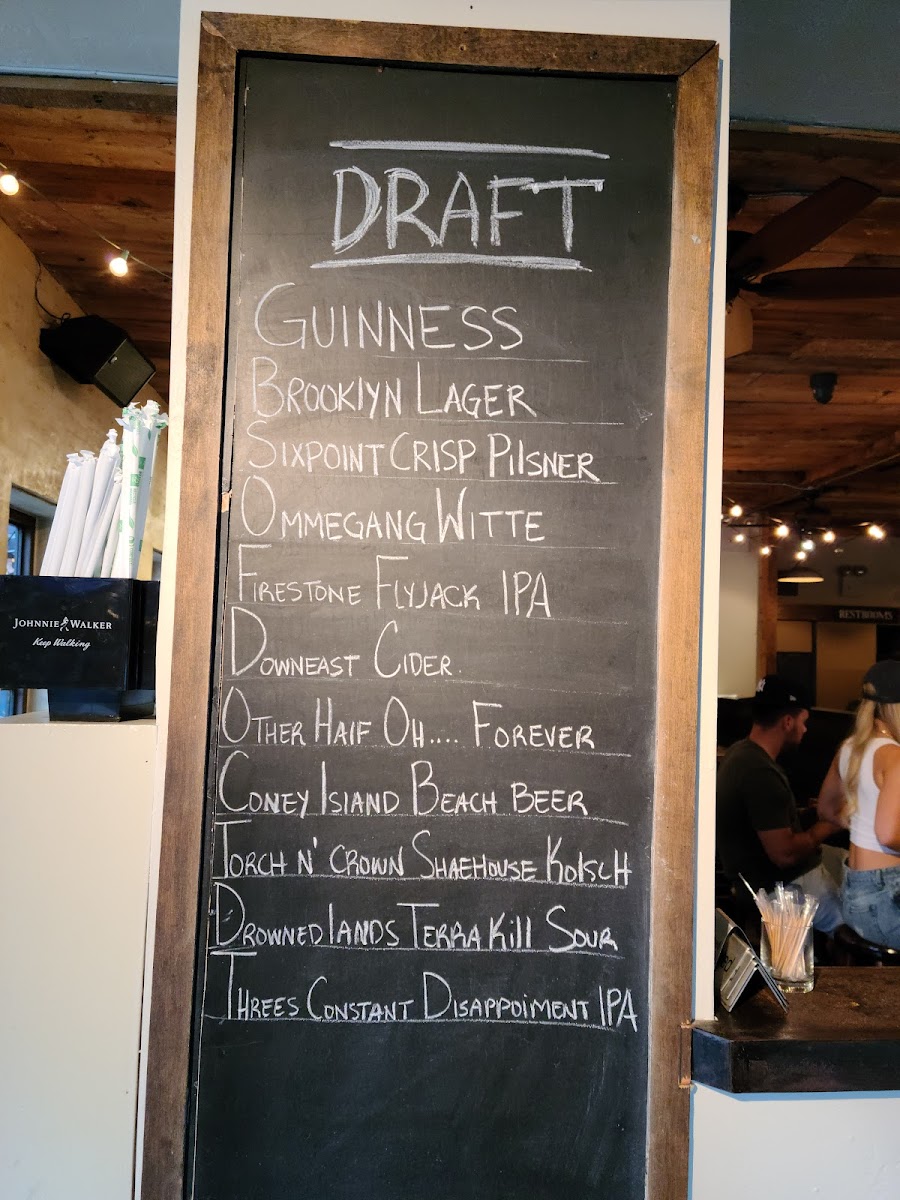 DRAFT
GUINNESS
BROOKLYN LAGER
SIXPOINT CRISP PILSNER
OMMEGANG WITTE
FIRESTONE FLYJACK IPA
DOWNEAST CIDER
OTHER HALF OH.... FOREVER
CONEY ISLAND BEACH BEER
TORCH N' CROWN SHAEHOUSE KOLSCH
DROWNED LANDS TERRA KILL SOUR
THREES CONSTANT DISAPPOIMENT IPA
JOHNNIE WALKER
Keep Walking
RESTROOMS